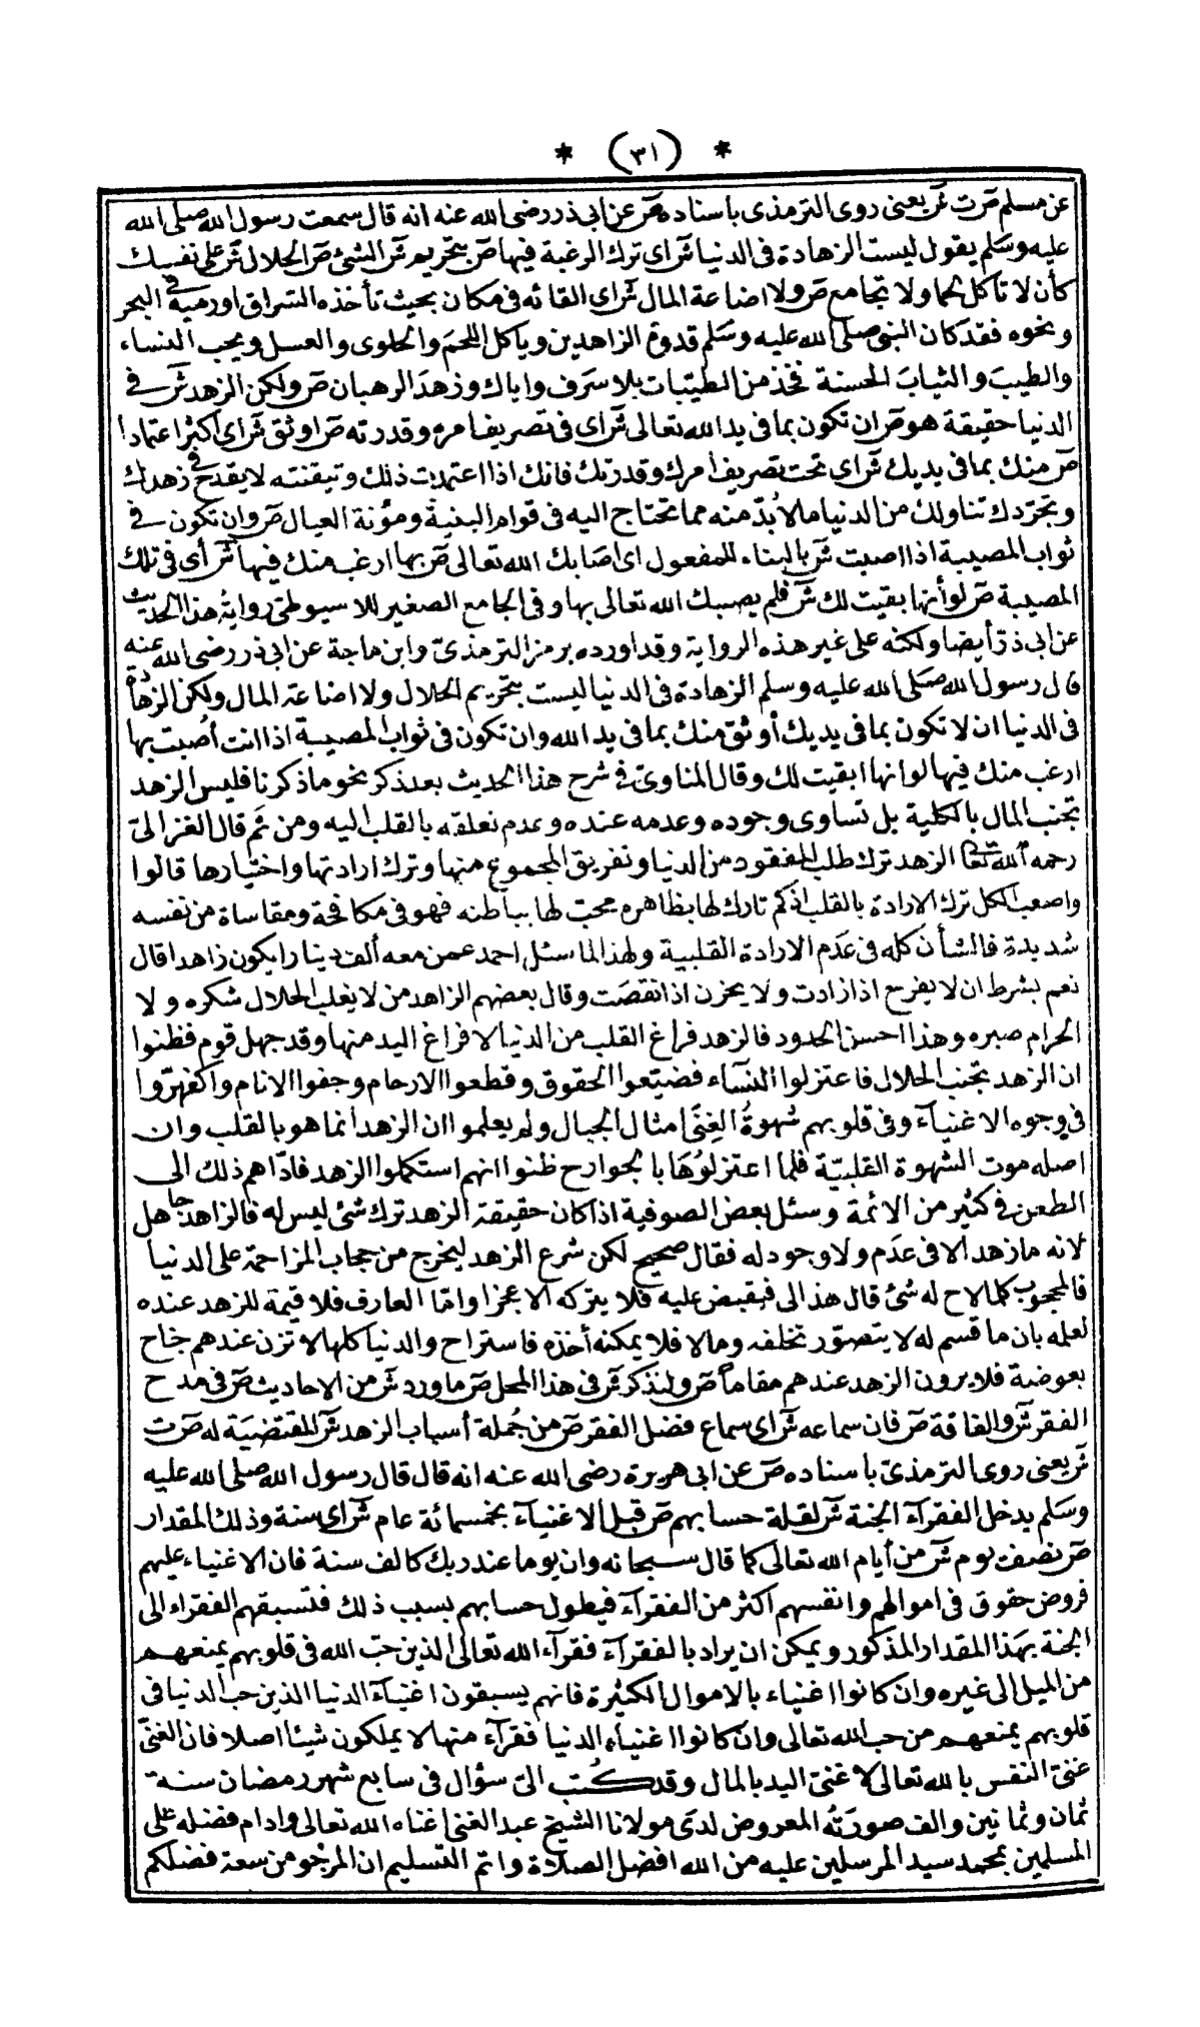 * (٣١) *
عن مسلم ص ت ش يعنى روى الترمذى باسناده ص عن ابى ذر رضى الله عنه انه قال سمعت رسول الله صلى الله
عليه وسلم يقول ليست الزهادة فى الدنيا ش اى ترك الرغبة فيها ص بتحريم ش الشئ ص الحلال ش على نفسك
كأن لا تأكل لحما ولا تجامع ص ولا اضاعة المال ش اى القائه فى مكان بحيث تأخذه السراق او رميه فى البحر
ونحوه فقد كان النبى صلى الله عليه وسلم قدوة الزاهدين وياكل اللحم والحلوى والعسل ويحب النساء
والطيب والثياب الحسنة فخذ من الطيبات بلا سرف واياك وزهد الرهبان ص ولكن الزهد ش فى
الدنيا حقيقة هو ص ان تكون بما فى يد الله تعالى ش اى فى تصريف امره وقدرته ص اوثق ش اى اكثر اعتمادا
ص منك بما فى يديك ش اى تحت تصريف امرك وقدرتك فانك اذا اعتمدت ذلك وتيقنته لا يقدح فى زهدك
وتجردك تناولك من الدنيا ما لا بد منه مما تحتاج اليه فى قوام البنية ومؤنة العيال ص وان تكون فى
ثواب المصيبة اذا اصبت ش بالبناء للمفعول اى اصابك الله تعالى ص بها ارغب منك فيها ش أى فى تلك
المصيبة ص لو أنها بقيت لك ش فلم يصبك الله تعالى بها وفى الجامع الصغير للاسيوطى رواية هذا الحديث
عن ابى ذر أيضا ولكنه على غير هذه الرواية وقد اورده برمز الترمذى وابن ماجة عن ابى ذر رضى الله عنه
قال رسول الله صلى الله عليه وسلم الزهادة فى الدنيا ليست بتحريم الحلال ولا اضاعة المال ولكن الزهادة
فى الدنيا ان لا تكون بما فى يديك أوثق منك بما فى يد الله وان تكون فى ثواب المصيبة اذا انت أصبت بها
ارغب منك فيها لو انها ابقيت لك وقال المناوى فى شرح هذا الحديث بعد ذكر نحو ما ذكرنا فليس الزهد
تجنب المال بالكلية بل تساوى وجوده وعدمه عنده وعدم تعلقه بالقلب اليه ومن ثم قال الغزالى
رحمه الله تعا الزهد ترك طلب المفقود من الدنيا وتفريق المجموع منها وترك ارادتها واختيارها قالوا
واصعب الكل ترك الارادة بالقلب اذ كم تارك لها بظاهره محب لها بباطنه فهو فى مكافحة ومقاساة من نفسه
شديدة فالشأن كله فى عدم الارادة القلبية ولهذا لما سئل احمد عمن معه ألف دينار ايكون زاهدا قال
نعم بشرط ان لا يفرح اذا زادت ولا يحزن اذا نقصت وقال بعضهم الزاهد من لا يغلب الحلال شكره ولا
الحرام صبره وهذا احسن الحدود فالزهد فراغ القلب من الدنيا لا فراغ اليد منها وقد جهل قوم فظنوا
ان الزهد تجنب الحلال فاعتزلوا النسآء فضيعوا الحقوق وقطعوا الارحام وجفوا الانام واكفهروا
فى وجوه الاغنيآء وفى قلوبهم شهوة الغنى امثال الجبال ولم يعلموا ان الزهد انما هو بالقلب وان
اصله موت الشهوة القلبية فلما اعتزلوها بالجوارح ظنوا انهم استكملوا الزهد فادّاهم ذلك الى
الطعن فى كثير من الائمة وسئل بعض الصوفية اذا كان حقيقة الزهد ترك شئ ليس له فالزاهد جاهل
لانه ما زهد الا فى عدم ولا وجود له فقال صحيح لكن شرع الزهد ليخرج من حجاب المزاحمة على الدنيا
فالمحجوب كلما لاح له شئ قال هذا لى فيقبض عليه فلا يتركه الا عجزا واما العارف فلا قيمة للزهد عنده
لعلمه بان ما قسم له لا يتصور تخلفه وما لا فلا يمكنه أخذه فاستراح والدنيا كلها لا تزن عندهم جناح
بعوضة فلا يرون الزهد عندهم مقاما ص ولنذكر ش فى هذا المحل ص ما ورد ش من الاحاديث ص فى مدح
الفقر ش والفاقة ص فان سماعه ش اى سماع فضل الفقر ص من جملة أسباب الزهد ش المقتضية له ص ت
ش يعنى روى الترمذى باسناده ص عن ابى هريرة رضى الله عنه انه قال قال رسول الله صلى الله عليه
وسلم يدخل الفقرآء الجنة ش لقلة حسابهم ص قبل الاغنيآء بخمسمائة عام ش اى سنة وذلك المقدار
ص نصف يوم ش من أيام الله تعالى كما قال سبحانه وان يوما عند ربك كالف سنة فان الاغنياء عليهم
فروض حقوق فى اموالهم وانفسهم اكثر من الفقرآء فيطول حسابهم بسبب ذلك فتسبقهم الفقراء الى
الجنة بهذا المقدار المذكور ويمكن ان يراد بالفقرآء فقرآء الله تعالى الذين حب الله فى قلوبهم يمنعهم
من الميل الى غيره وان كانوا اغنياء بالاموال الكثيرة فانهم يسبقون اغنيآء الدنيا الذين حب الدنيا فى
قلوبهم يمنعهم من حب الله تعالى وان كانوا اغنياء الدنيا فقرآء منها لا يملكون شيئا اصلا فان الغنى
غنى النفس بالله تعالى لا غنى اليد بالمال وقد كتب الى سؤال فى سابع شهر رمضان سنة
ثمان وثمانين والف صورته المعروض لدى مولانا الشيخ عبد الغنى اغناه الله تعالى وادام فضله على
المسلمين بمحمد سيد المرسلين عليه من الله افضل الصلاة واتم التسليم ان المرجو من سعة فضلكم